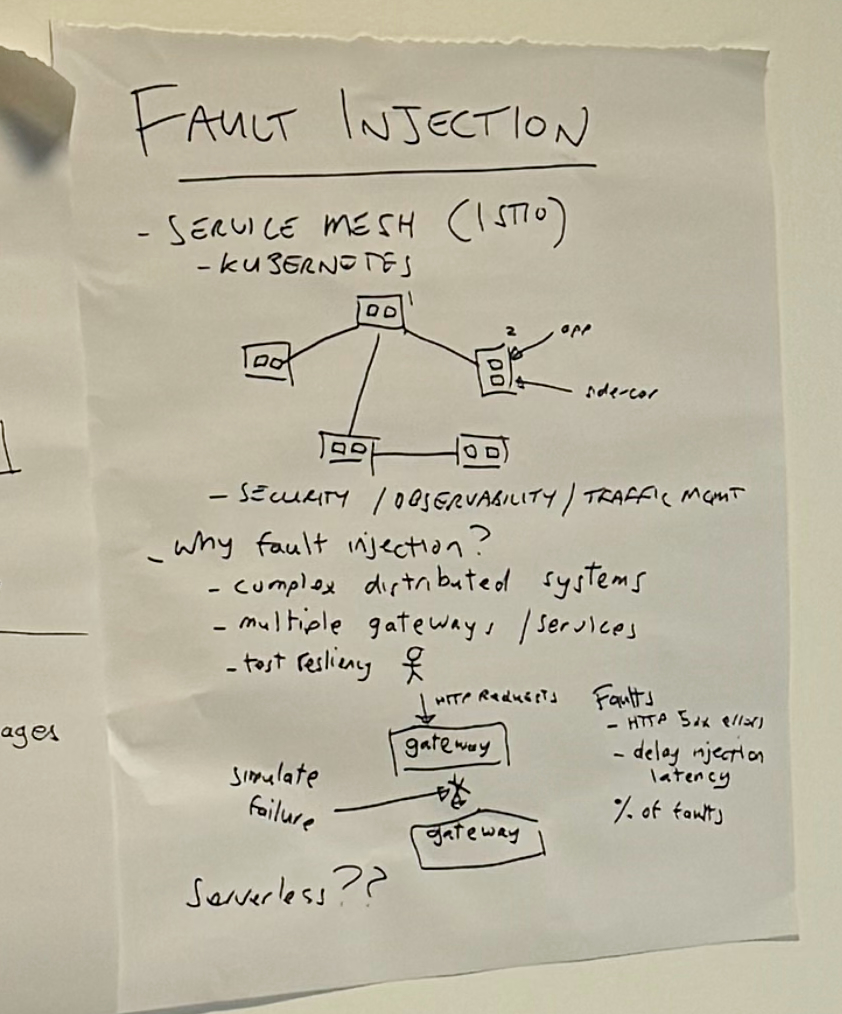 FAULT INJECTION
- SERVICE MESH (ISTIO)
- KUBERNETES
1
2
app
side-car
- SECURITY / OBSERVABILITY / TRAFFIC MGMT
- Why fault injection?
- complex distributed systems
- multiple gateways / services
- test resliency
HTTP Requests
gateway
simulate
failure
gateway
Faults
- HTTP 5xx errors
- delay injection
latency
% of faults
Serverless??
ages